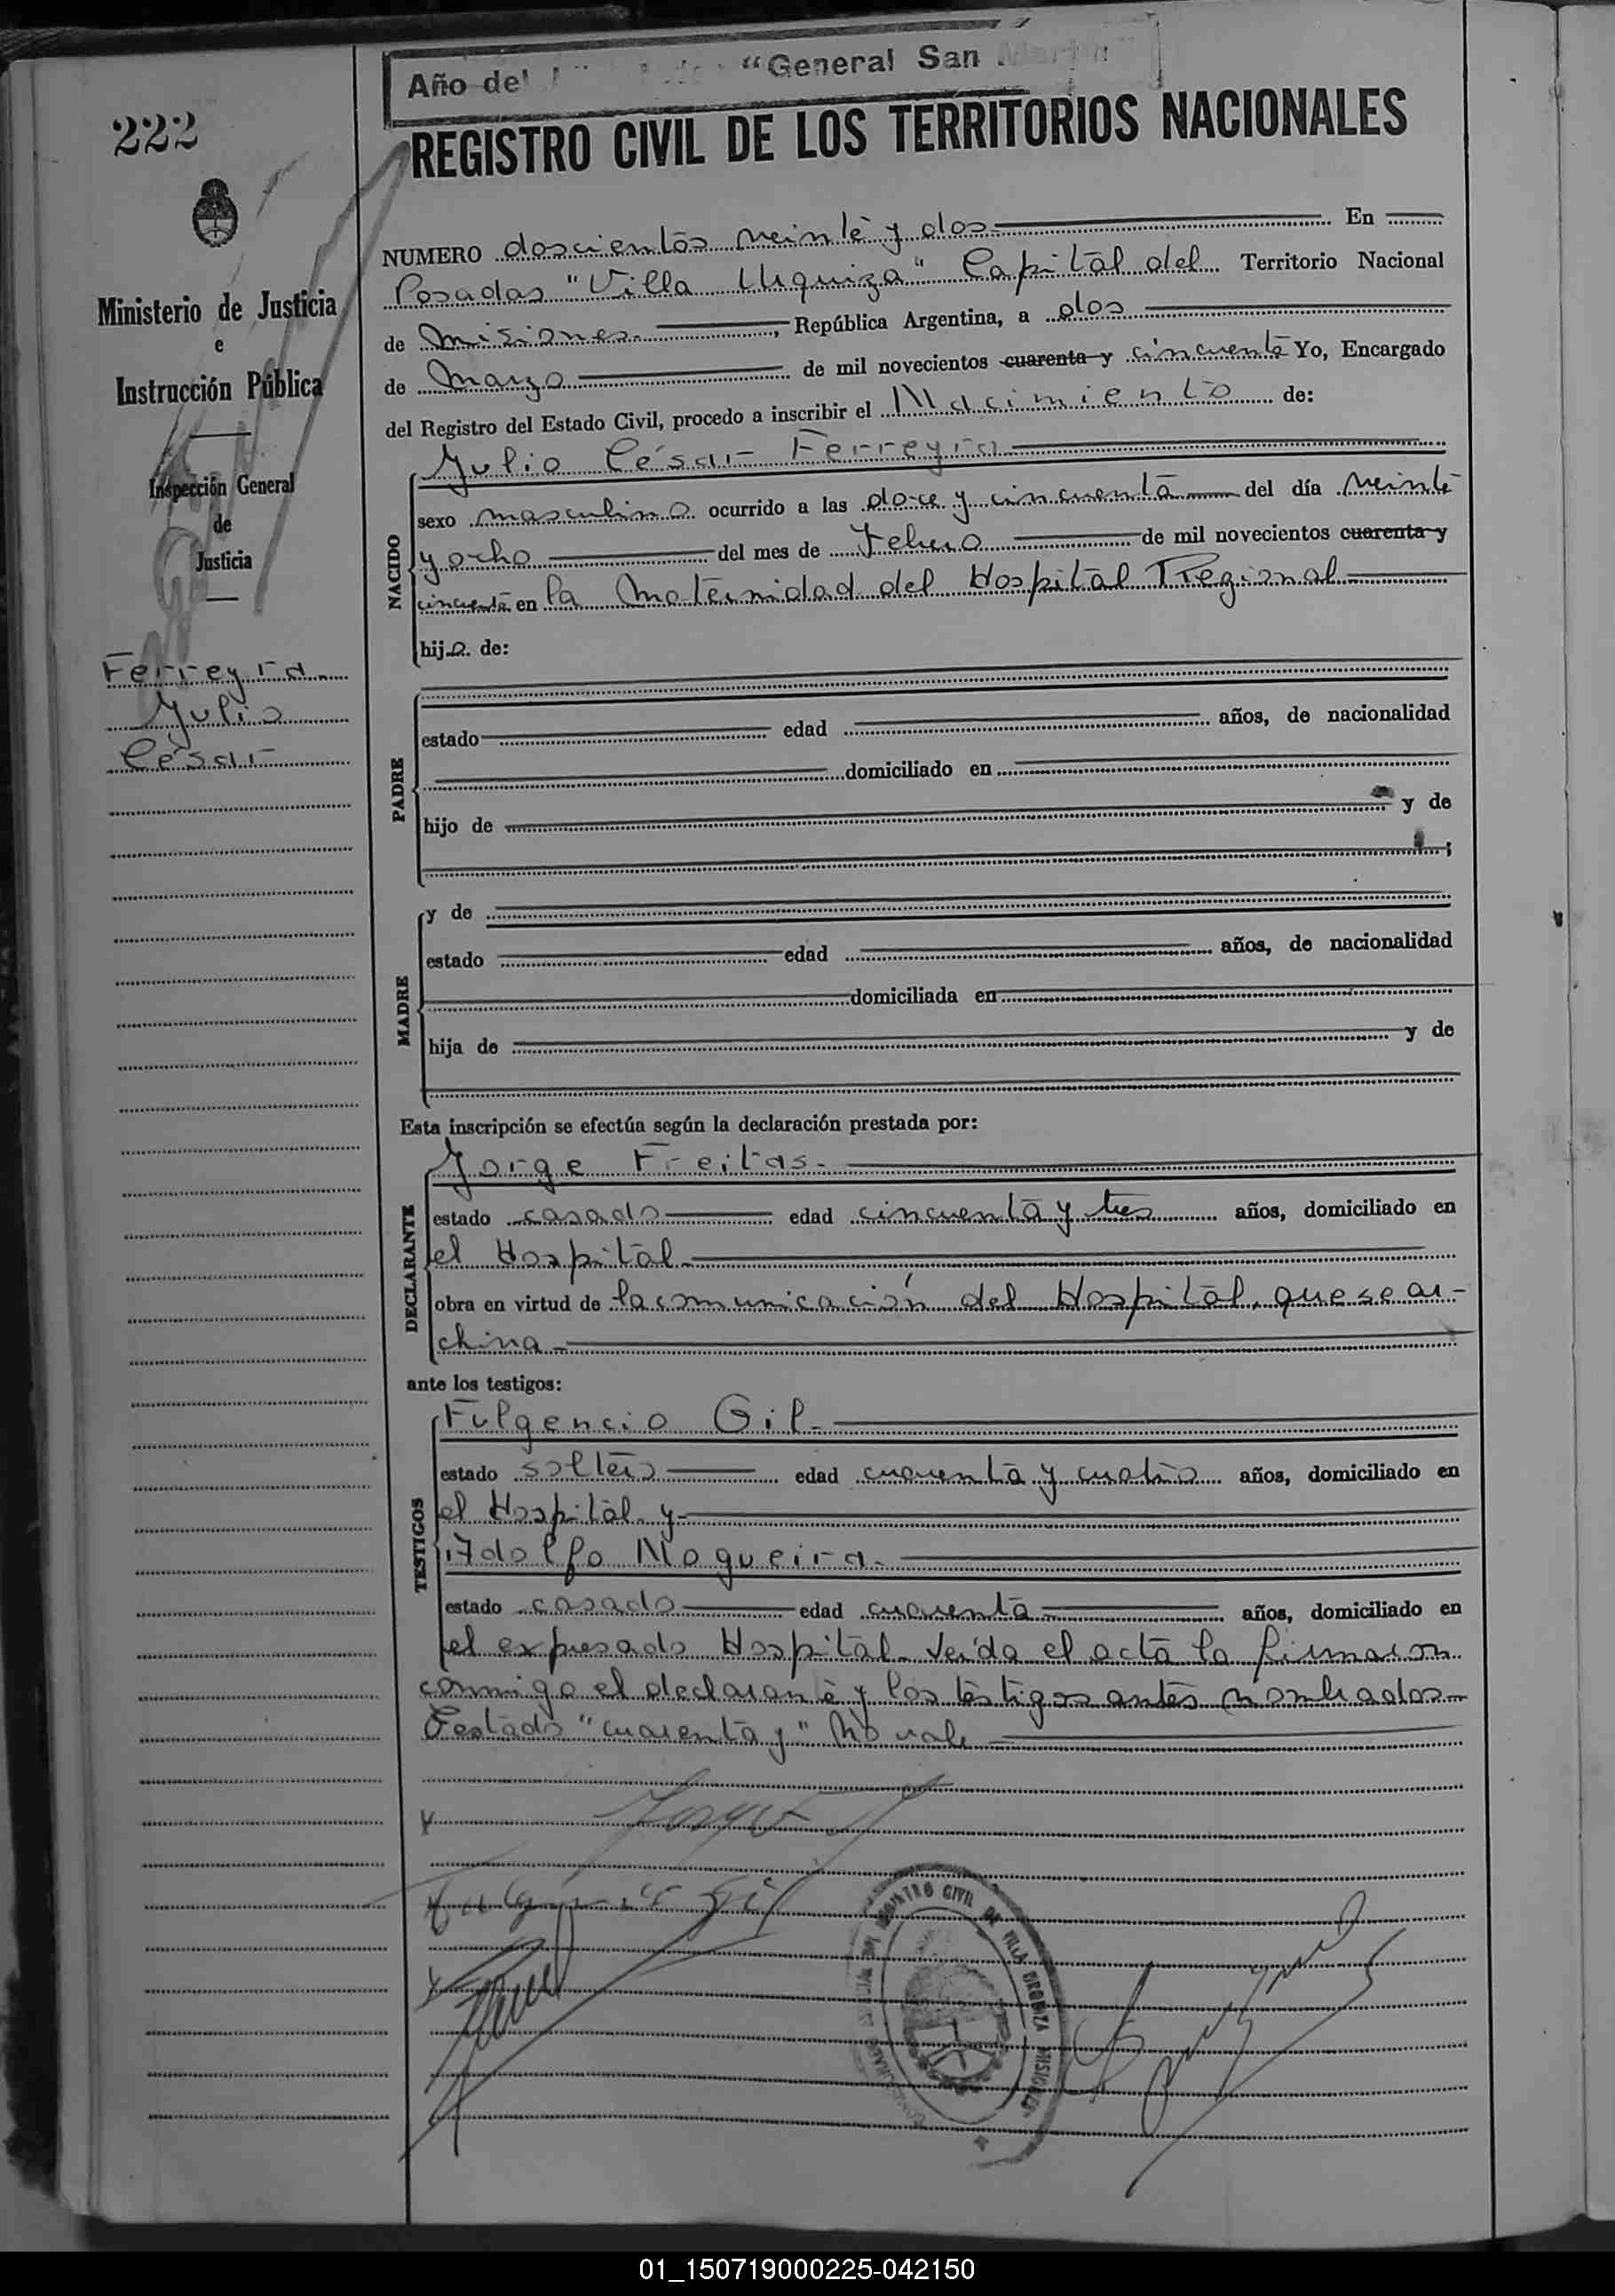 Año del "General San Martín"
222
REGISTRO CIVIL DE LOS TERRITORIOS NACIONALES
Ministerio de Justicia
e
Instrucción Pública
Inspección General
de
Justicia
Ferreyra
Julio
César
NUMERO doscientos veinte y dos En
Posadas "Villa Urquiza" Capital del Territorio Nacional
de Misiones, República Argentina, a dos
de Marzo de mil novecientos cuarenta y cincuenta Yo, Encargado
del Registro del Estado Civil, procedo a inscribir el Nacimiento de:
NACIDO
Julio César Ferreyra
sexo masculino ocurrido a las doce y cincuenta del día veinte
y ocho del mes de Febrero de mil novecientos cuarenta y
cincuenta en la Maternidad del Hospital Regional
hijo de:
PADRE
estado edad años, de nacionalidad
domiciliado en
hijo de y de
;
MADRE
y de
estado edad años, de nacionalidad
domiciliada en
hija de y de
Esta inscripción se efectúa según la declaración prestada por:
DECLARANTE
Jorge Freitas.
estado casado edad cincuenta y tres años, domiciliado en
el Hospital
obra en virtud de la comunicación del Hospital, que se ar-
chiva
ante los testigos:
TESTIGOS
Fulgencio Gil
estado soltero edad cuarenta y cuatro años, domiciliado en
el Hospital y
Adolfo Nogueira.
estado casado edad cuarenta años, domiciliado en
el expresado Hospital. Leída el acta la firmaron
conmigo el declarante y los testigos antes nombrados
Testado "cuarenta y" No vale
REGISTRO CIVIL DE VILLA URQUIZA MISIONES
01_150719000225-042150